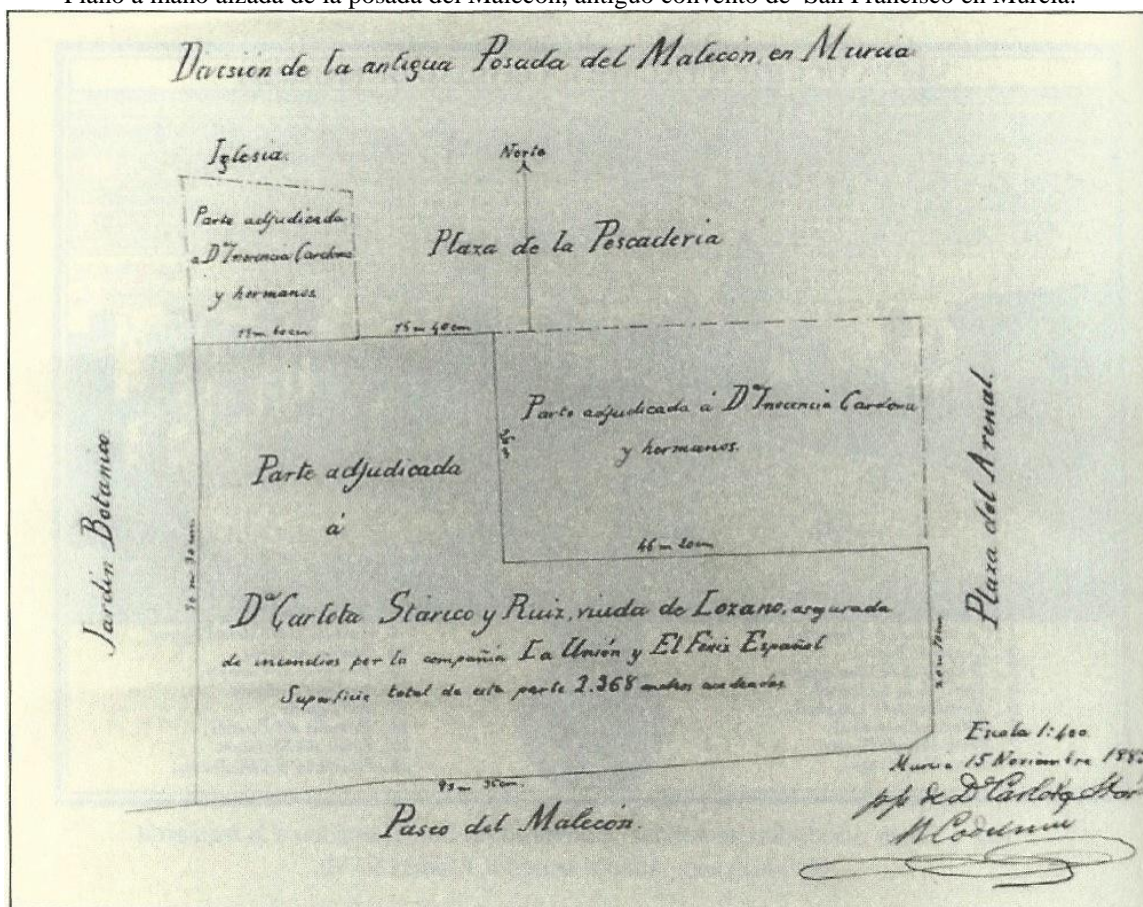 Plano a mano alzada de la posada del Malecón, antiguo convento de San Francisco en Murcia.
Division de la antigua Posada del Malecón, en Murcia.
Iglesia.
Norte
Parte adjudicada
a Dª Inocencia Cardona
y hermanos
Plaza de la Pescaderia
15 m 40 cm
Parte adjudicada á Dª Inocencia Cardona
y hermanos.
Parte adjudicada
á
46 m 20 cm
Jardin Botanico
Plaza del Arenal.
Dª Carlota Starico y Ruiz, viuda de Lozano, asegurada
de incendios por la compañia La Unión y El Fenix Español
Superficie total de esta parte 2.368 metros cuadrados
Escala 1:400
Murcia 15 Noviembre
p/p de Dª Carlota Star
Paseo del Malecón.